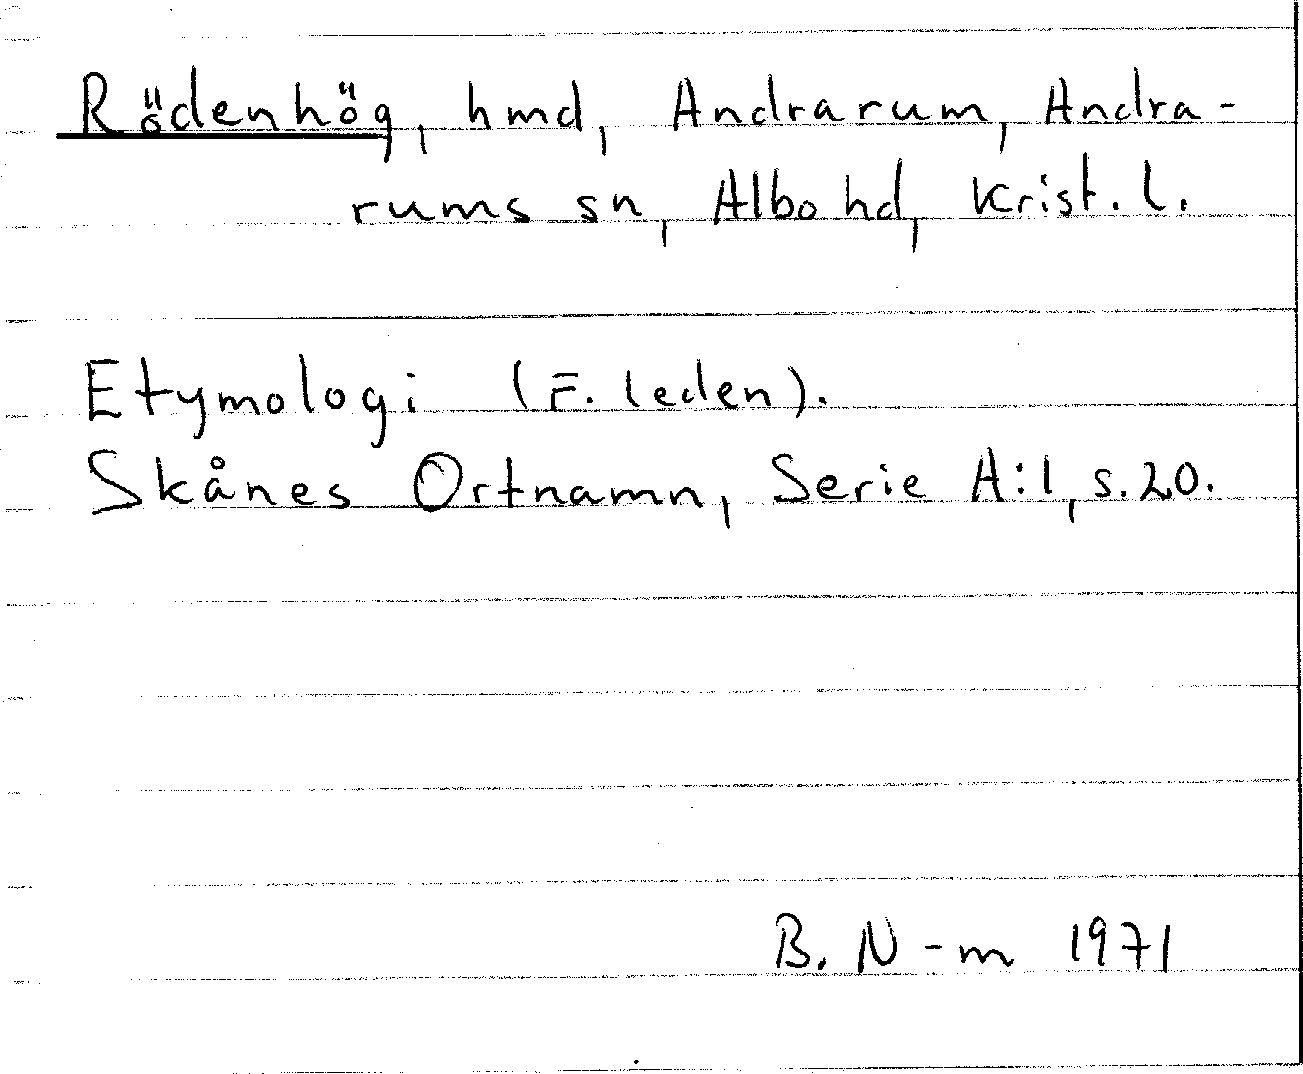 Rödenhög, hmd, Andrarum, Andra-
rums sn, Albo hd, Krist. l.
Etymologi (F. leden).
Skånes Ortnamn, Serie A:1, s. 20.
B. N-m 1971